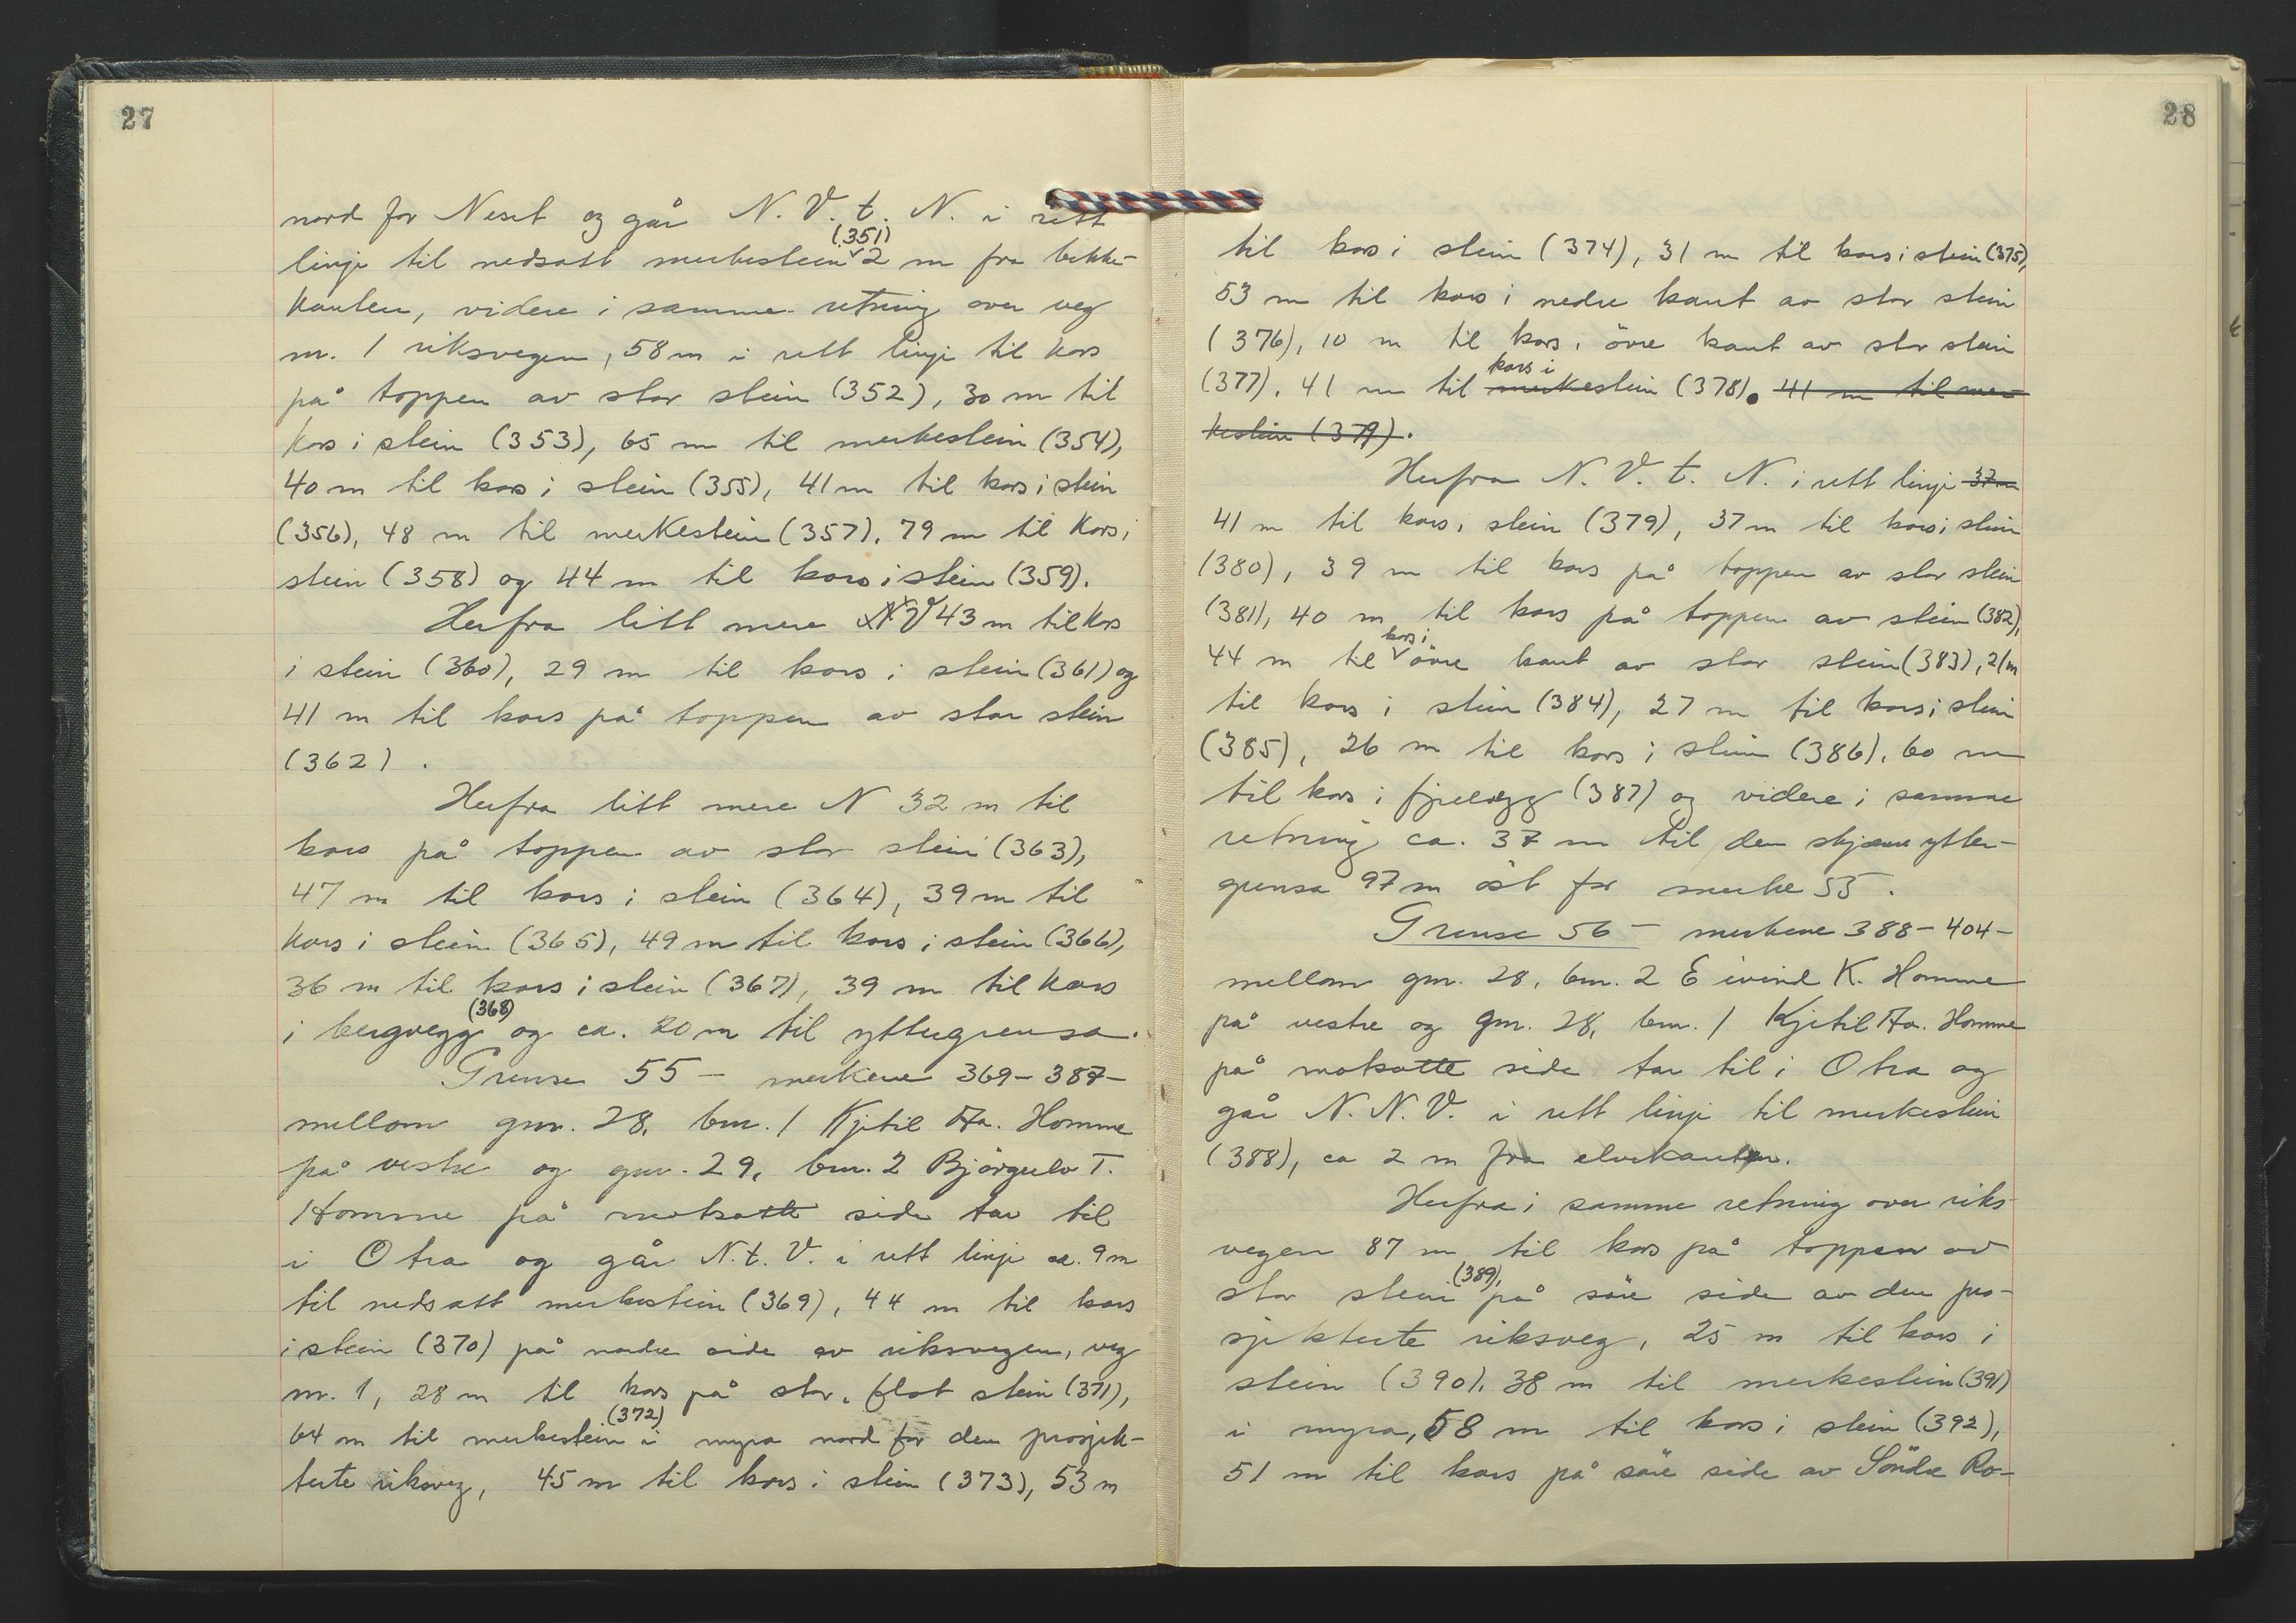 27
nord for Neset og går N. V. t. N. i rett
(351)
linje til nedsatt merkestein 2 m fra bekke-
kanten, videre i samme retning over veg
nr. 1 riksvegen, 58 m i rett linje til kors
på toppen av stor stein (352), 30 m til
kors i stein (353), 65 m til merkestein (354),
40 m til kors i stein (355), 41 m til kors i stein
(356), 48 m til merkestein (357), 79 m til kors i
stein (358) og 44 m til kors i stein (359).
Herfra litt mere V 43 m til kors
i stein (360), 29 m til kors i stein (361) og
41 m til kors på toppen av stor stein
(362).
Herfra litt mere N 32 m til
kors på toppen av stor stein (363),
47 m til kors i stein (364), 39 m til
kors i stein (365), 49 m til kors i stein (366),
36 m til kors i stein (367), 39 m til kors
(368)
i bergvegg og ca. 20 m til yttergrensa.
Grense 55 - merkene 369-387-
mellom gnr. 28, bnr. 1 Kjetil Aa. Homme
på vestre og gnr. 29, bnr. 2 Björgulv T.
Homme på motsatte side tar til
i Otra og går N. t. V. i rett linje ca. 9 m
til nedsatt merkestein (369), 44 m til kors
i stein (370) på nordre side av riksvegen, veg
nr. 1, 28 m til kors på stor, flat stein (371),
(372)
64 m til merkestein i myra nord for den prosjek-
terte riksveg, 45 m til kors i stein (373), 53 m
28
til kors i stein (374), 31 m til kors i stein (375),
53 m til kors i nedre kant av stor stein
(376), 10 m til kors i övre kant av stor stein
kors i
(377), 41 m til merkestein (378). 41 m til mer-
kestein (379).
Herfra N. V. t. N. i rett linje 37 m
41 m til kors i stein (379), 37 m til kors i stein
(380), 39 m til kors på toppen av stor stein
(381), 40 m til kors på toppen av stein (382),
kors i
44 m til övre kant av stor stein (383), 21 m
til kors i stein (384), 27 m til kors i stein
(385), 26 m til kors i stein (386), 60 m
til kors i fjellvegg (387) og videre i samme
retning ca. 37 m til den skjönne ytter-
grensa 97 m öst for merke 55.
Grense 56 - merkene 388-404-
mellom gnr. 28, bnr. 2 Eivind K. Homme
på vestre og gnr. 28, bnr. 1 Kjetil Aa. Homme
på motsatte side tar til i Otra og
går N. N. V. i rett linje til merkestein
(388), ca 2 m fra elvekanten.
Herfra i samme retning over riks-
vegen 87 m til kors på toppen av
(389),
stor stein på söre side av den pro-
sjekterte riksveg, 25 m til kors i
stein (390), 38 m til merkestein (391)
i myra, 58 m til kors i stein (392),
51 m til kors på söre side av Söndre Ro-